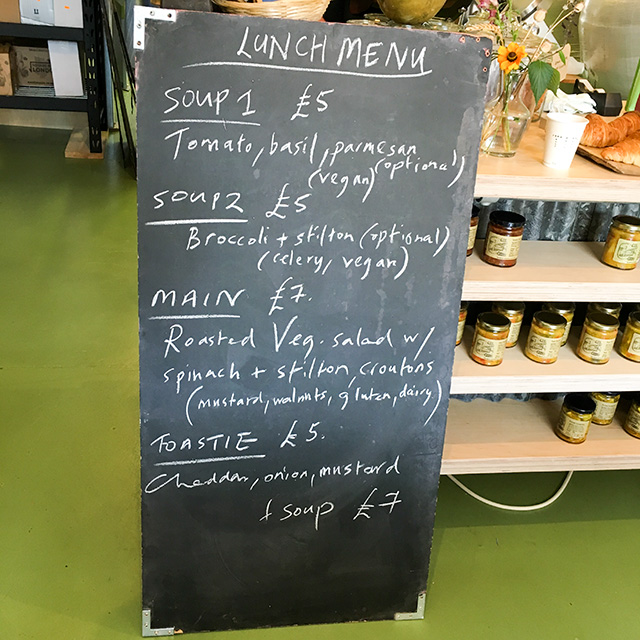 LUNCH MENU
SOUP 1 £5
Tomato, basil, parmesan
(optional)
(vegan)
SOUP 2 £5
Broccoli + stilton (optional)
(celery, vegan)
MAIN £7.
Roasted Veg. salad w/
spinach + stilton, croutons
(mustard, walnuts, gluten, dairy)
TOASTIE £5.
Cheddar, onion, mustard
+ soup £7